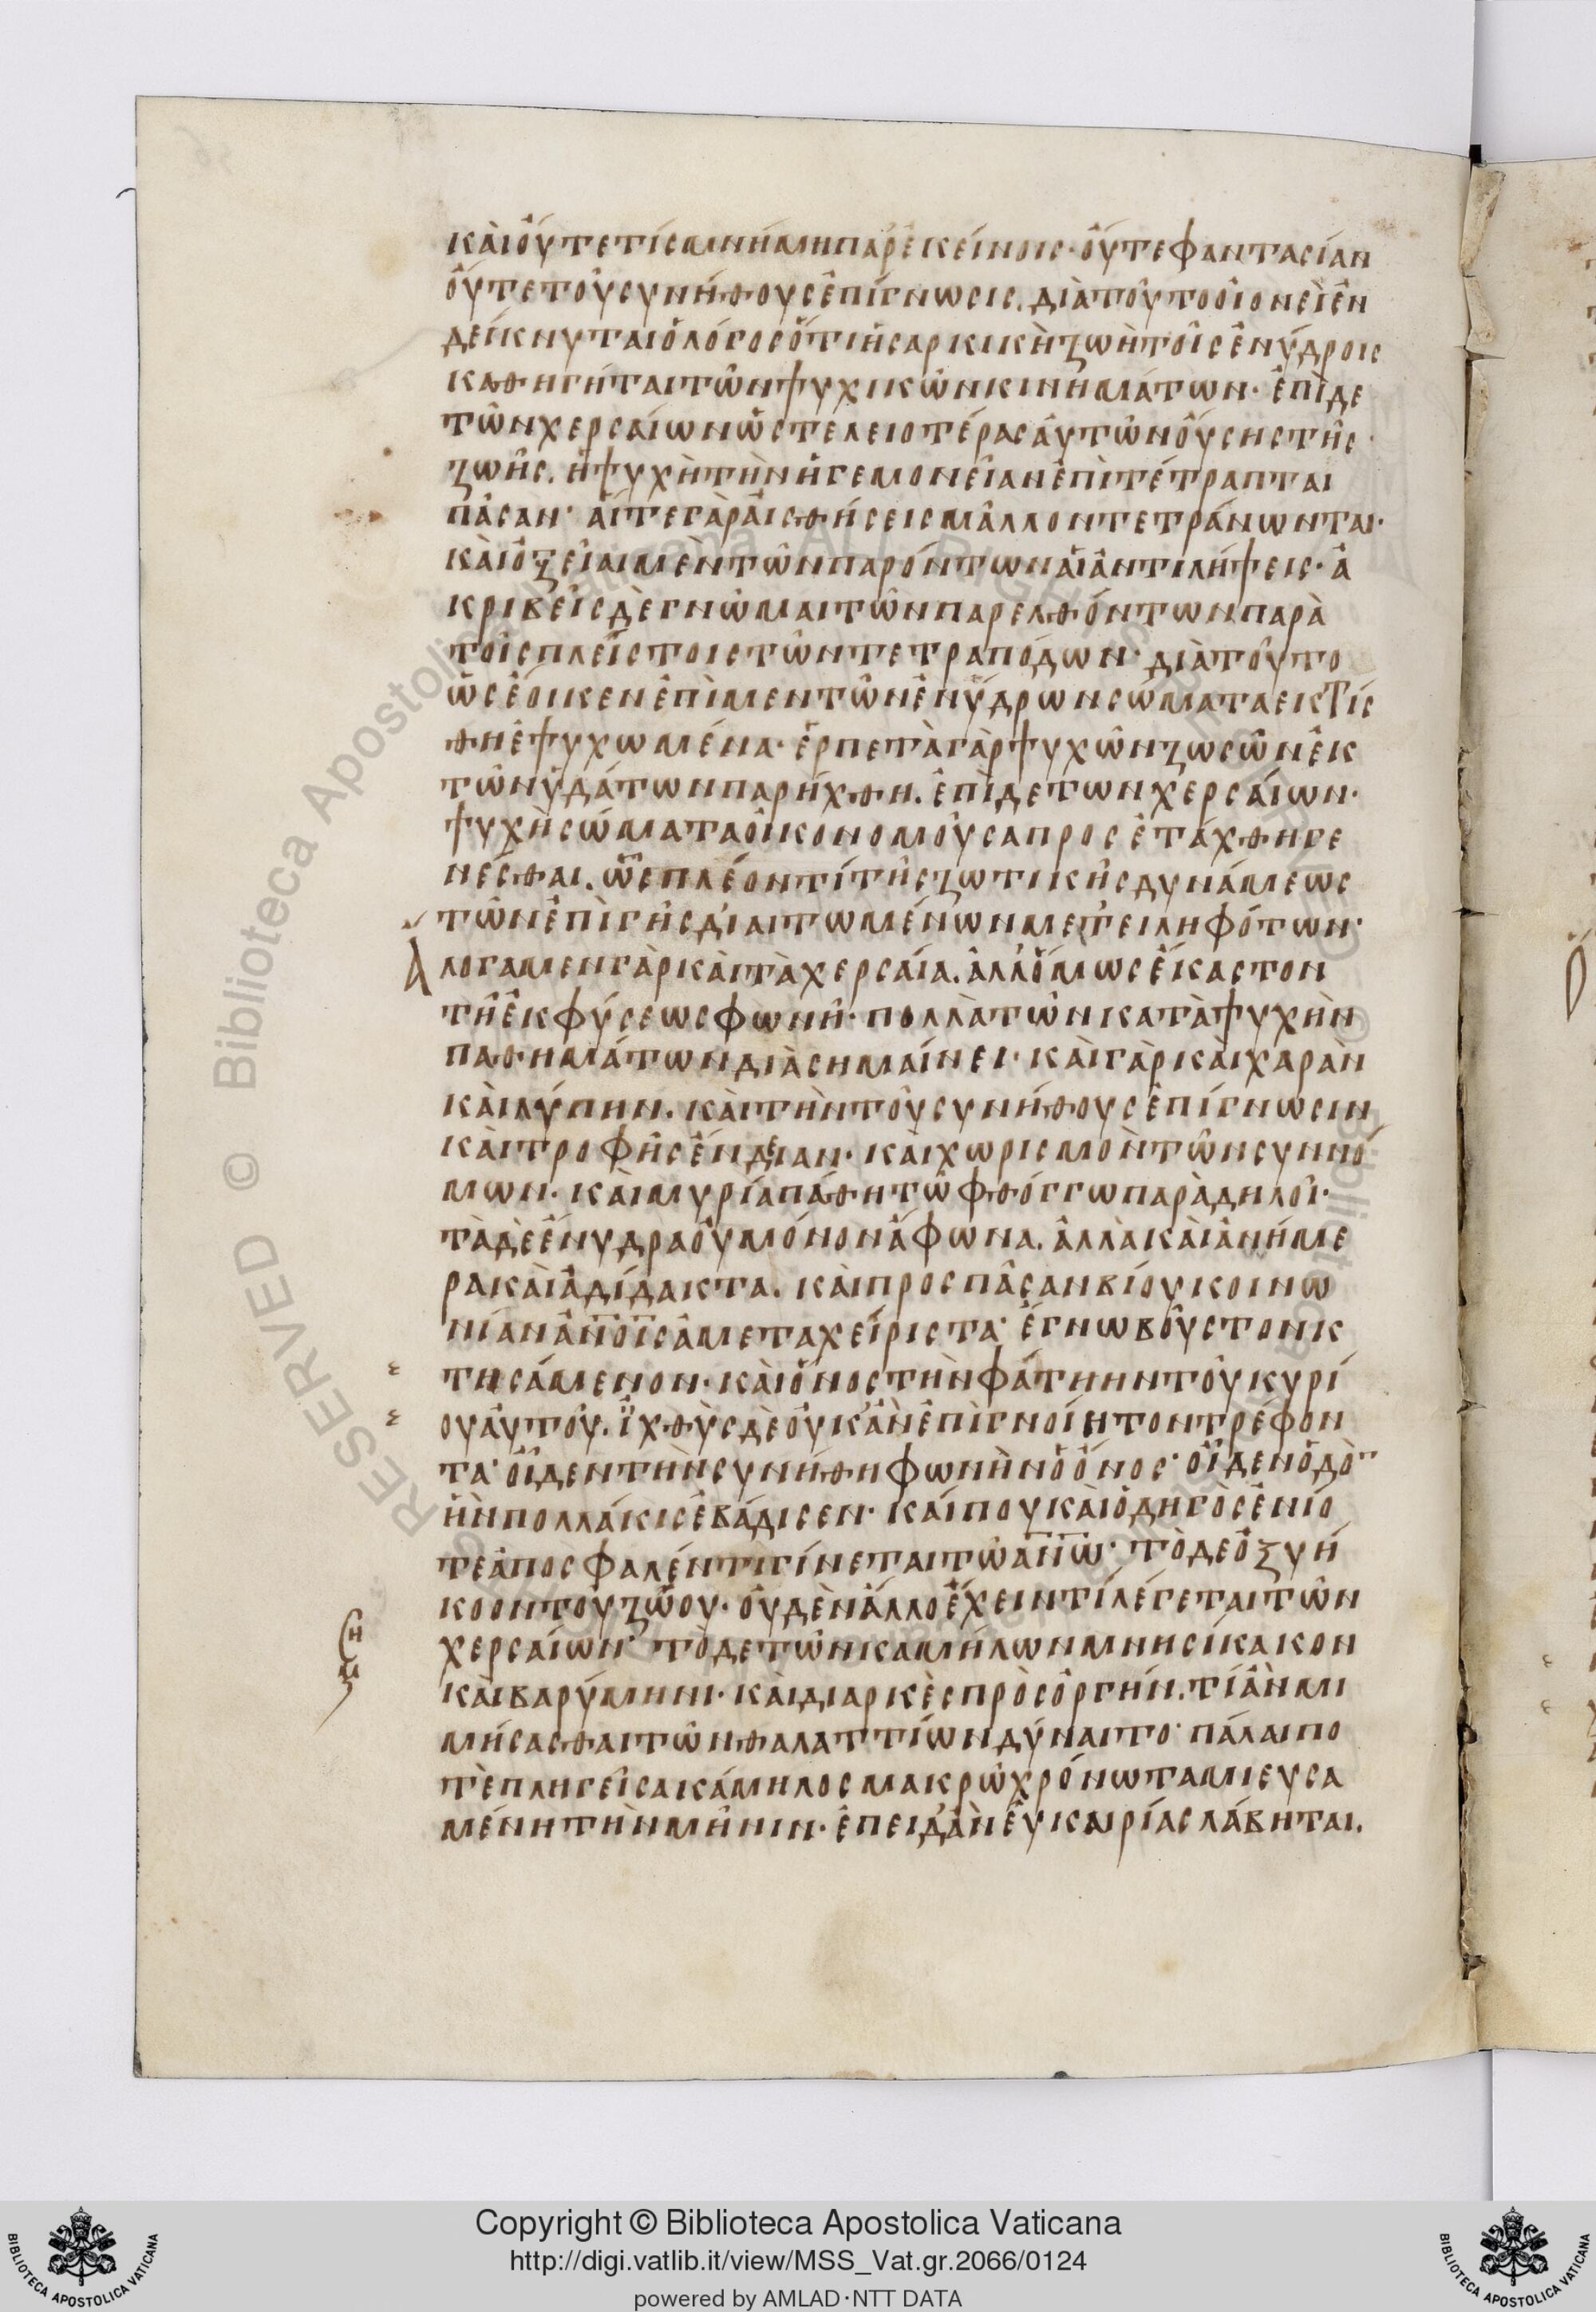 καὶ οὔτε τίς μνήμη παρ' ἐκείνοις· οὔτε φαντασίαν
οὔτε τοῦ συνήθους ἐπίγνωσις. διὰ τοῦτο οἱονεὶ ἐν
δείκνυται ὁ λόγος ὅτι ἡ σαρκικὴ ζωὴ τοῖς ἐνύδροις
καθηγήται τῶν ψυχικῶν κινημάτων· ἐπὶ δε
τῶν χερσαίων ὡς τελειοτέρας αὐτῶν οὔσης τῆς
ζωῆς. ἡ ψυχὴ τὴν ἡγεμονείαν ἐπιτέτραπται
πᾶσαν· αἵ τε γὰρ αἰσθήσεις μᾶλλον τετράνωνται·
καὶ ὀξεῖαι μὲν τῶν παρόντων αἱ ἀντιλήψεις· ἀ
κριβεῖς δὲ γνῶμαι τῶν παρελθόντων παρὰ
τοῖς πλείστοις τῶν τετραπόδων· διὰ τοῦτο
ὡς ἔοικεν ἐπὶ μεν τῶν ἐνύδρων σώματα εκτίσ
θη ἐψυχωμένα· ἑρπετὰ γὰρ ψυχῶν ζωσῶν ἐκ
τῶν ὑδάτων παρήχθη. ἐπὶ δε των χερσαίων·
ψυχὴ σώματα οἰκονομοῦσα προσετάχθη γε
νέσθαι. ὡς πλέον τί τῆς ζωτικῆς δυνάμεως
τῶν ἐπὶ γῆς διαιτωμένων μετειληφότων·
Ἄλογα μεν γὰρ καὶ τὰ χερσαία. ἀλλ' ὅμως ἕκαστον
τῇ ἐκ φύσεως φωνῇ· πολλὰ τῶν κατὰ ψυχὴν
παθημάτων διὰσημαίνει· καὶ γὰρ καὶ χαρὰν
καὶ λύπην. καὶ τὴν τοῦ συνήθους ἐπίγνωσιν
καὶ τροφῆς ἔνδειαν· καὶ χωρισμὸν τῶν συννό
μων· καὶ μυρία πάθη τῶ φθόγγω παρὰδηλοῖ·
τὰ δὲ ἔνυδρα οὐ μόνον ἄφωνα. ἀλλὰ καὶ ἀνήμε
ρα καὶ ἀδίδακτα. καὶ προς πᾶσαν βίου κοινω
νίαν ἀνοῖς ἀμεταχείριστα· ἔγνω βοῦς τον κ
τησάμενον· καὶ ὄνος τὴν φάτνην τοῦ κυρί
ου αὐτοῦ. ἰχθὺς δὲ οὐκ ἂν ἐπιγνοίη τον τρέφον
τα· οἶδεν τὴν συνήθη φωνὴν ὁ ὄνος· οἶδεν ὁδὸν
ἣν πολλάκις ἐβάδισεν· καί που καὶ ὁδηγὸς ἐνίο
τε ἀποσφαλέντι γίνεται τῶ ἀνω· τὸ δε ὀξυή
κοον τοῦ ζώου· οὐδὲν ἄλλο ἔχειν τί λέγεται τῶν
χερσαίων· τὸ δε τῶν καμήλων μνησίκακον
καὶ βαρύμηνι· καὶ διαρκὲς πρὸς ὀργήν. τί ἂν μι
μήσασθαι τῶν θαλαττίων δύναιτο· πάλαι πο
τὲ πληγεῖσα κάμηλος μακρῶ χρόνω ταμιευσα
μένη τὴν μῆνιν· ἐπειδ' ἂν εὐκαιρίας λάβηται.
Copyright © Biblioteca Apostolica Vaticana
http://digi.vatlib.it/view/MSS_Vat.gr.2066/0124
powered by AMLAD·NTT DATA
BIBLIOTECA APOSTOLICA VATICANA
BIBLIOTECA APOSTOLICA VATICANA